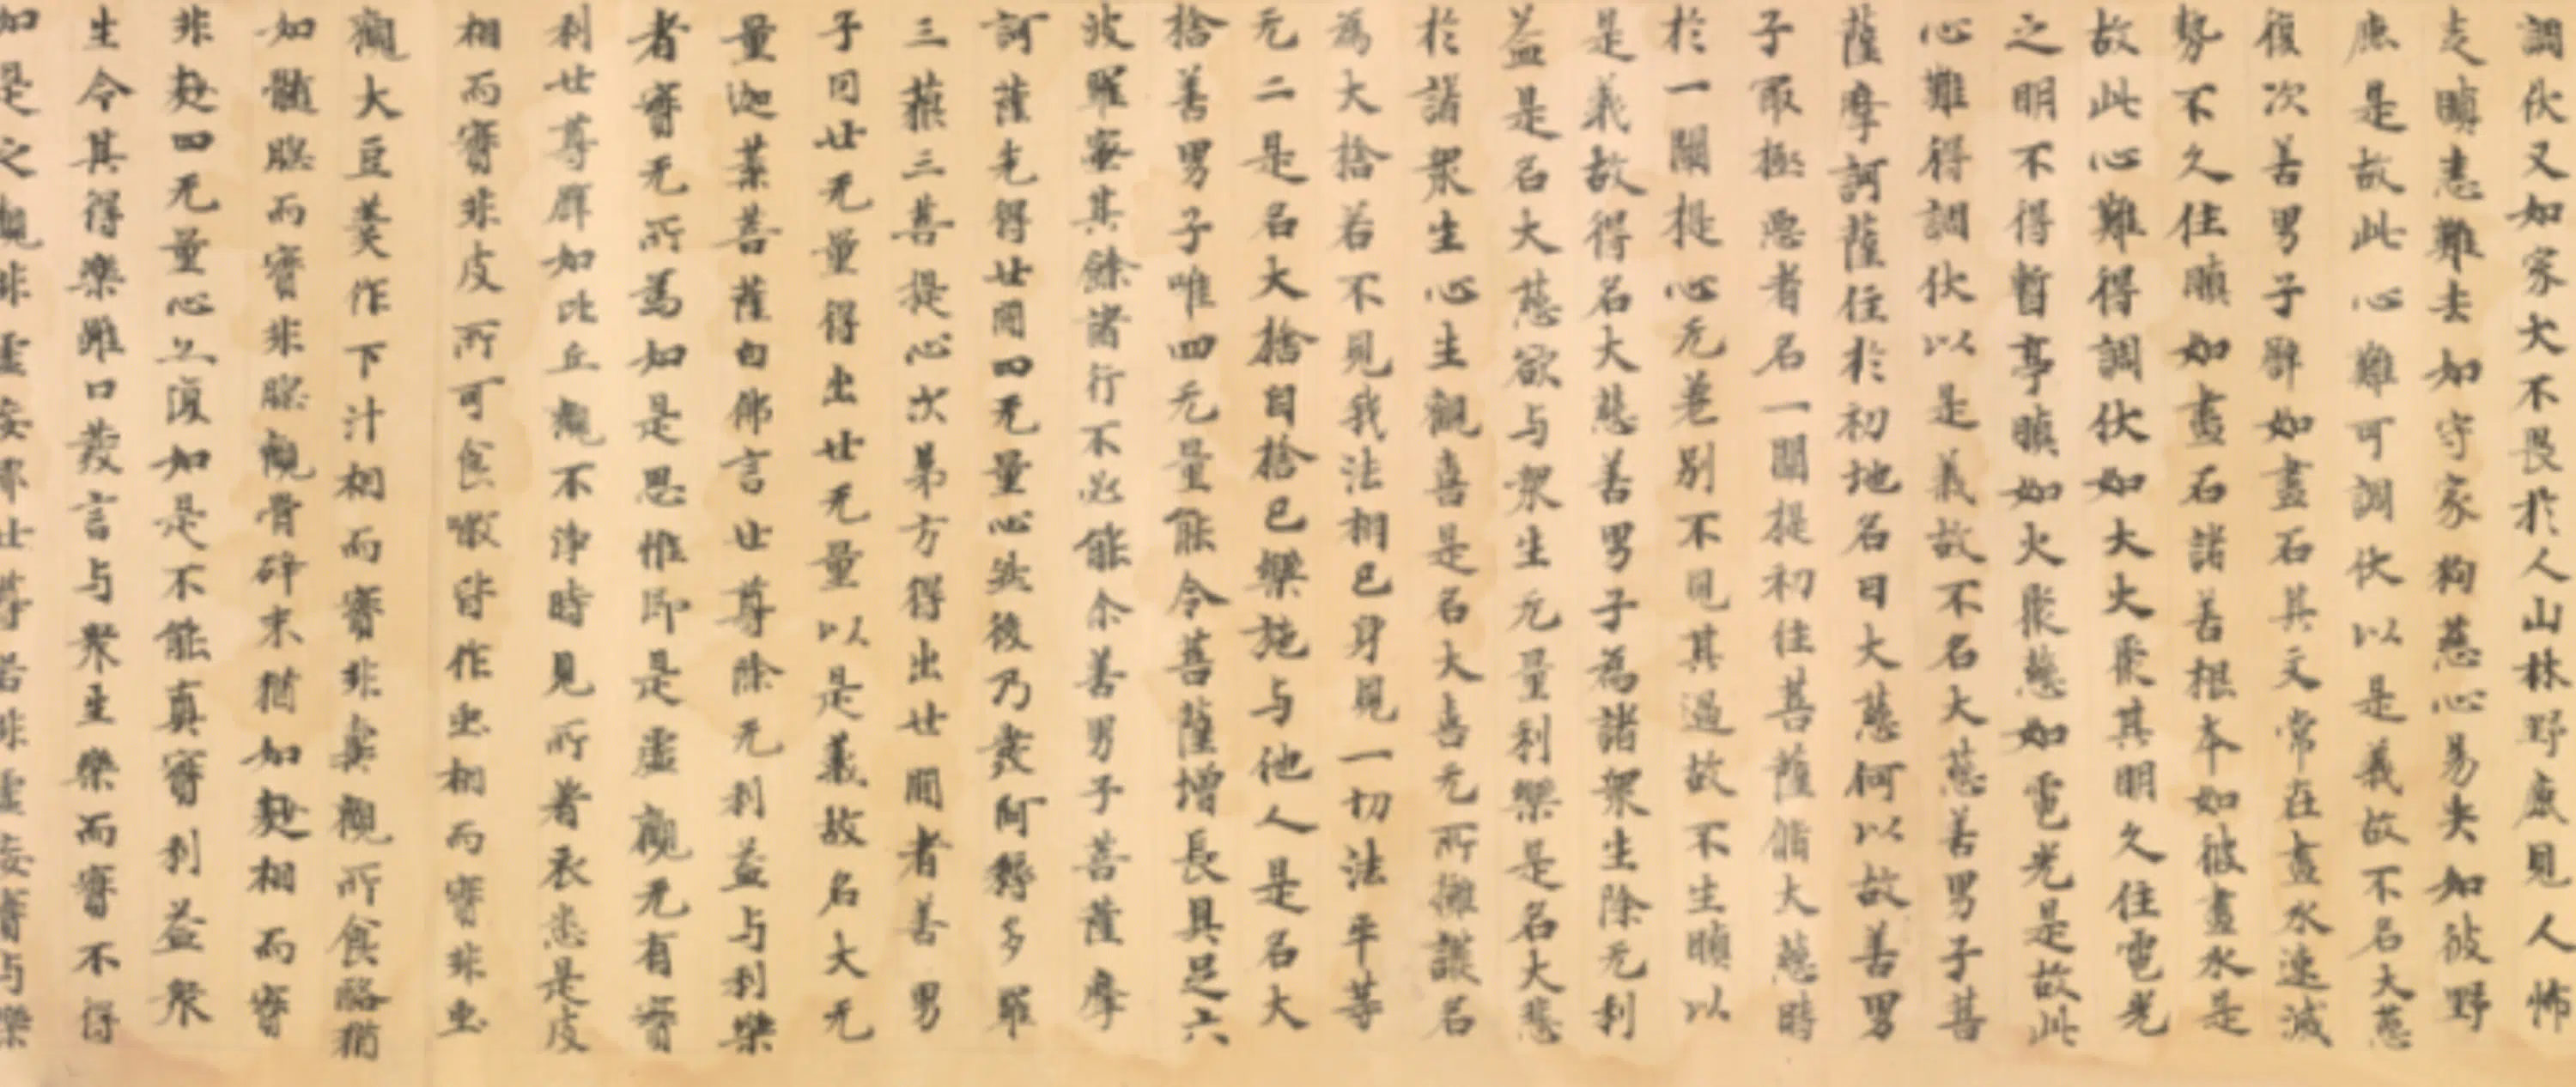 調伏又如家犬不畏於人山林野鹿見人怖
走瞋恚難去如守家狗慈心易失如彼野
鹿是故此心難可調伏以是義故不名大慈
復次善男子辟如畫石其文常在畫水速滅
勢不久住瞋如畫石諸善根本如彼畫水是
故此心難得調伏如大火聚其明久住電光
之明不得暫亭瞋如火聚慈如電光是故此
心難得調伏以是義故不名大慈善男子菩
薩摩訶薩住於初地名曰大慈何以故善男
子㝡極惡者名一闡提初住菩薩脩大慈時
於一闡提心无差別不見其過故不生瞋以
是義故得名大慈善男子為諸衆生除无利
益是名大慈欲与衆生无量利樂是名大悲
於諸衆生心生觀喜是名大喜无所擁護名
為大捨若不見我法相己身見一切法平等
无二是名大捨自捨己樂施与他人是名大
捨善男子唯四无量能令菩薩增長具足六
波羅蜜其餘諸行不必能尒善男子菩薩摩
訶薩先得世間四无量心然後乃發阿耨多羅
三藐三菩提心次第方得出世間者善男
子因世无量得出世无量以是義故名大无
量迦葉菩薩白佛言世尊除无利益与利樂
者實无所為如是思惟即是虛觀无有實
利世尊辟如比丘觀不淨時見所著衣悉是皮
相而實非皮所可食噉皆作虫相而實非虫
觀大豆羹作下汁相而實非糞觀所食酪猶
如髓腦而實非腦觀骨碎末猶如麨相而實
非麨四无量心亦復如是不能真實利益衆
生令其得樂雖口發言与衆生樂而實不得
如是之觀非虛妄耶世尊若非虛妄實与樂